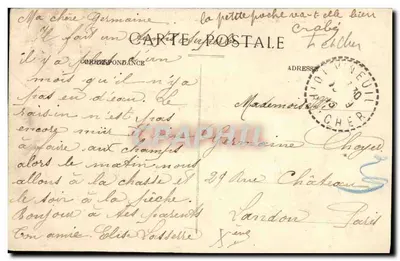 Ma chère Germaine
la petite poche va-t-elle bien
Il fait un
CARTE POSTALE
CORRESPONDANCE
ADRESSE
il y a plus d'un
mois qu'il n'y a
pas eu d'eau. Le
raisin n'est pas
encore mûr
à faire aux champs
alors le matin nous
allons à la chasse et
le soir à la pêche.
Bonjour à tes parents
Ton amie Elise Lasserre
NEUIL
CHER
Mademoiselle
Germaine
29 Rue Château
Landon Paris
Xème